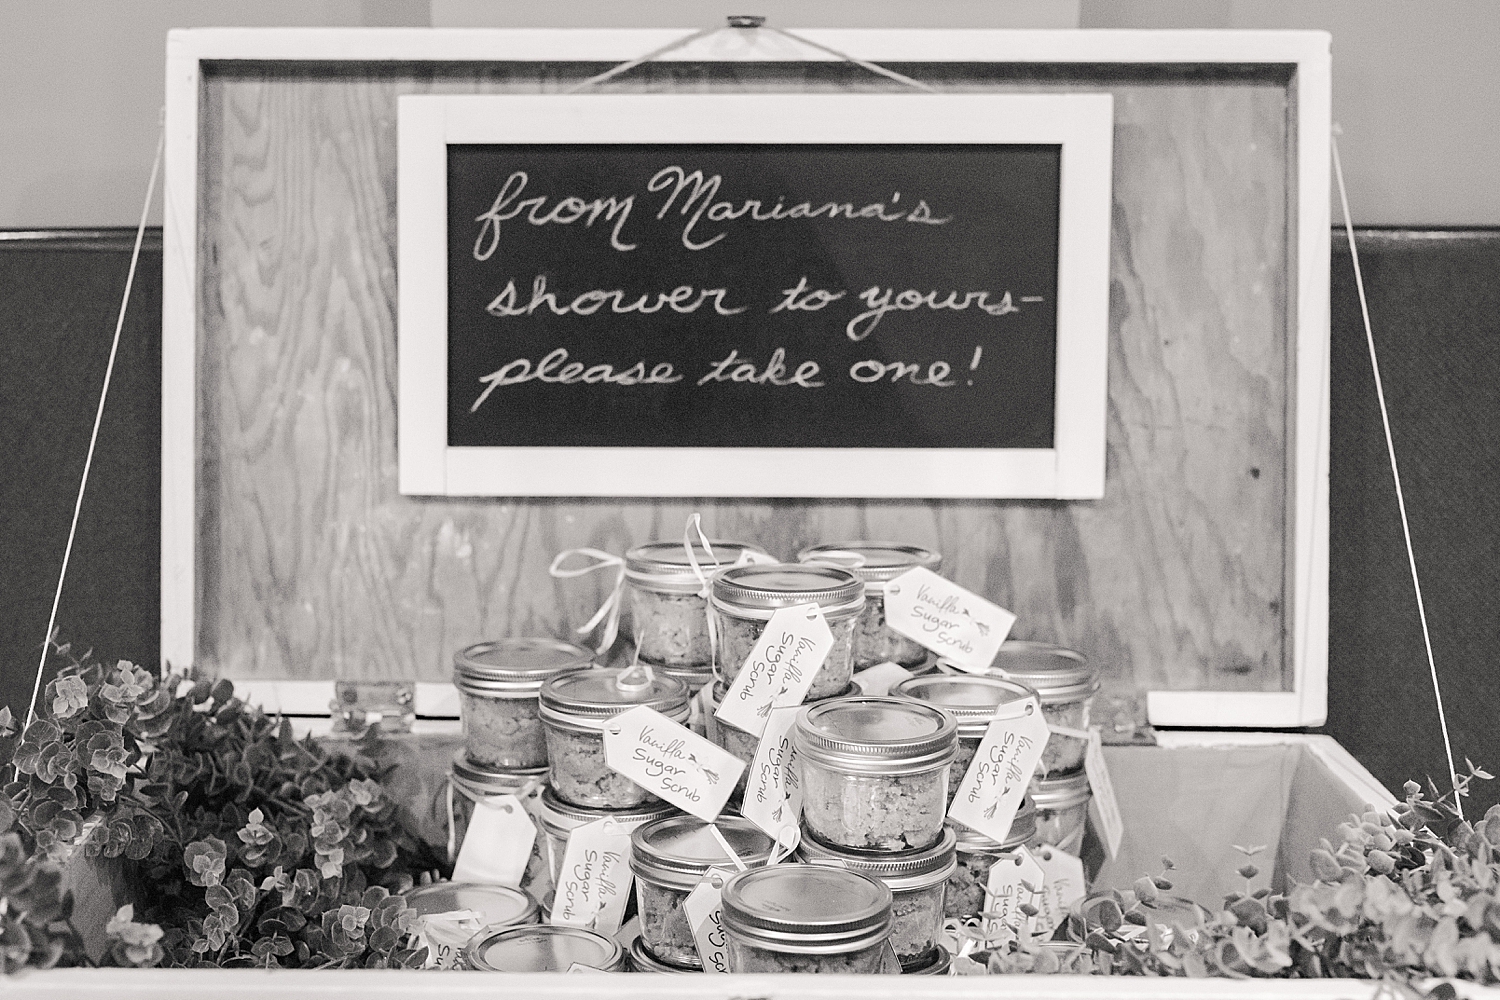 from Mariana's
shower to yours-
please take one!
Vanilla
Sugar
Scrub
Vanilla
Sugar
Scrub
Vanilla
Sugar
Scrub
Vanilla
Sugar
Scrub
Vanilla
Sugar
Scrub
Vanilla
Sugar
Scrub